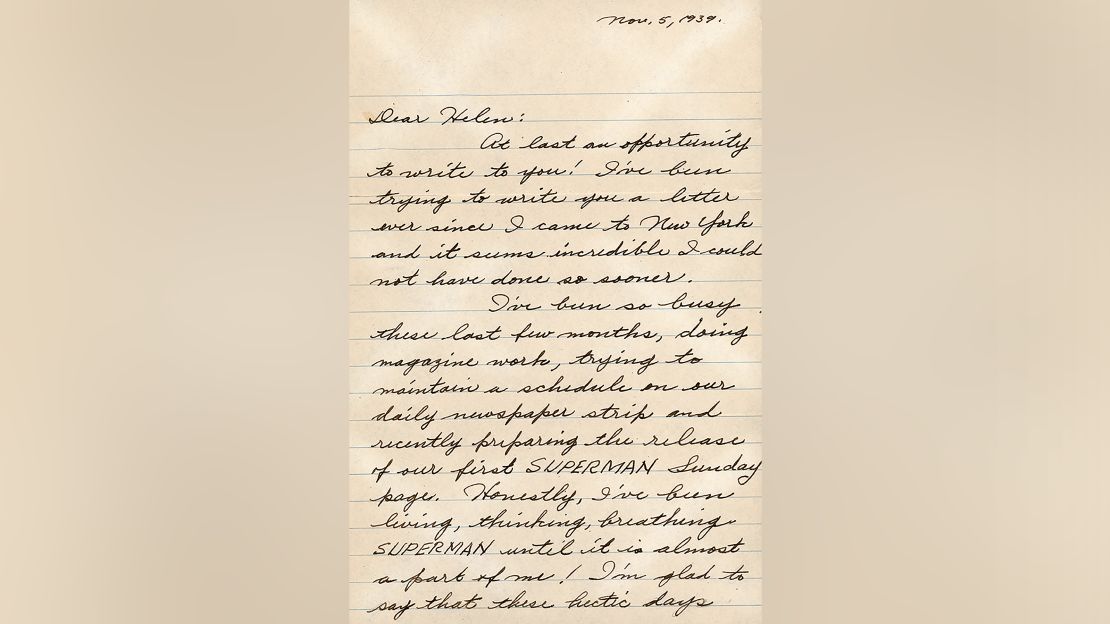 Nov. 5, 1939.
Dear Helen:
At last an opportunity
to write to you! I've been
trying to write you a letter
ever since I came to New York
and it seems incredible I could
not have done so sooner.
I've been so busy
these last few months, doing
magazine work, trying to
maintain a schedule on our
daily newspaper strip and
recently preparing the release
of our first SUPERMAN Sunday
page. Honestly, I've been
living, thinking, breathing
SUPERMAN until it is almost
a part of me! I'm glad to
say that these hectic days